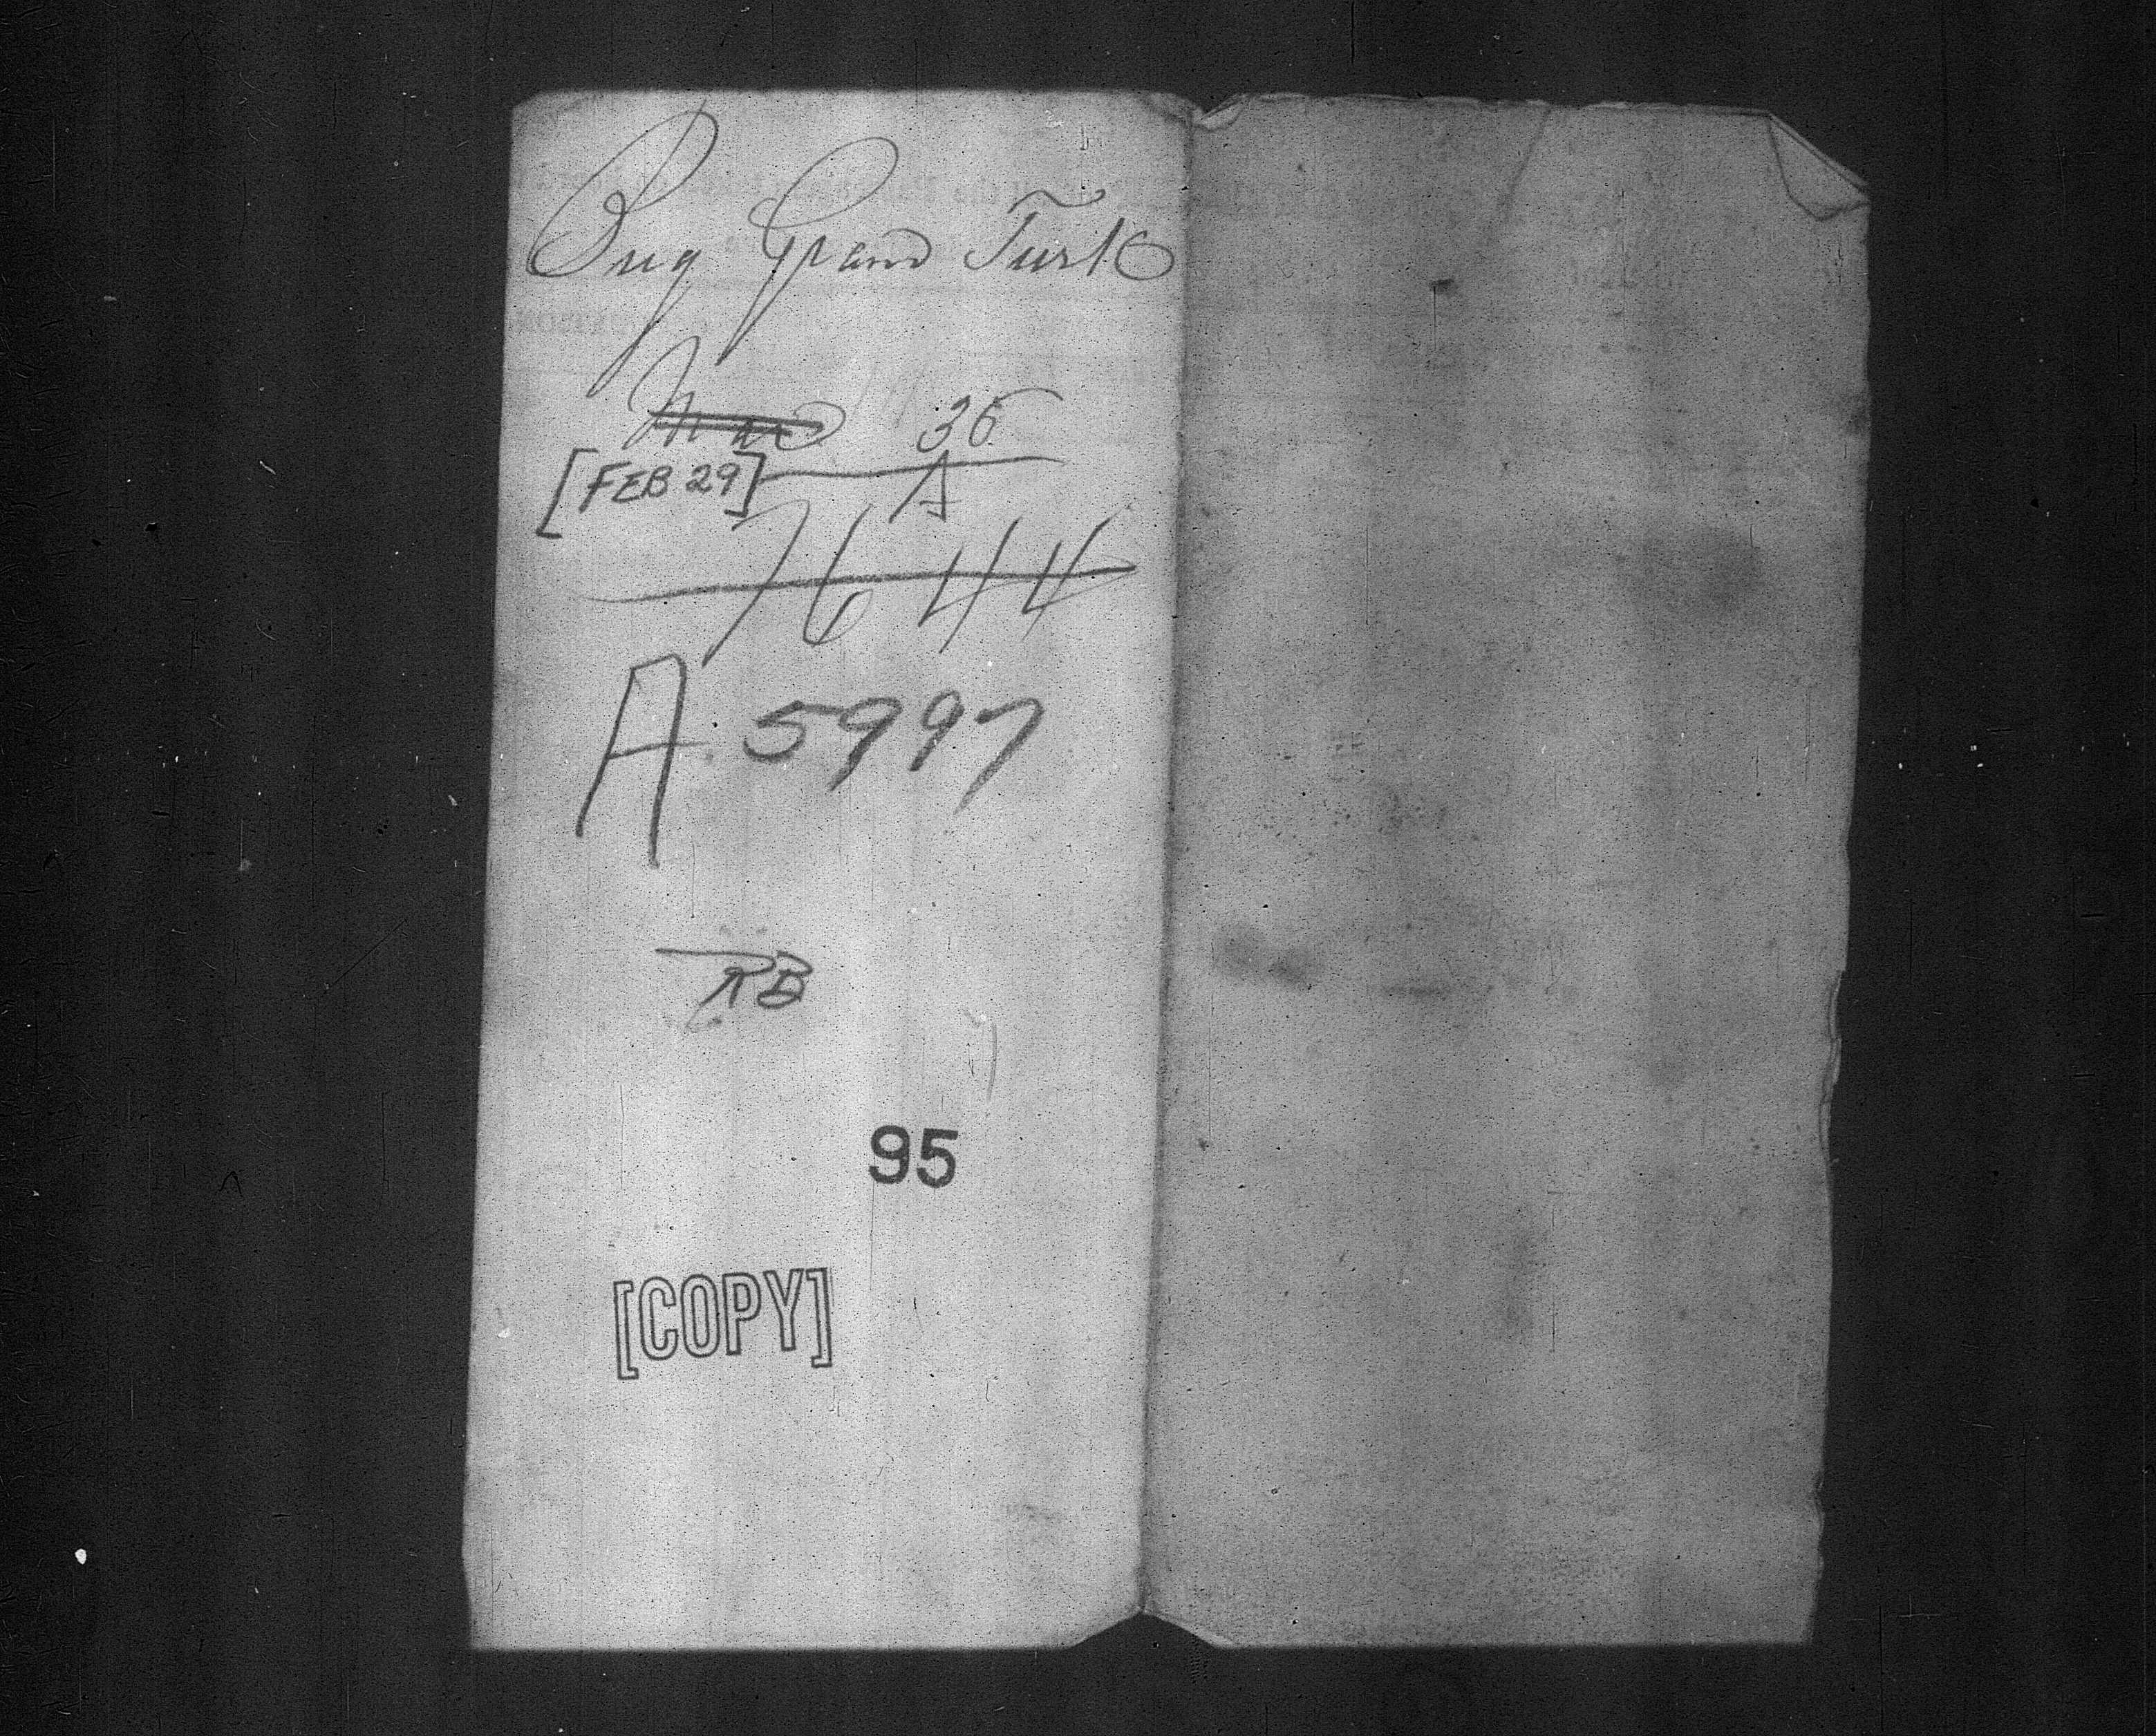 Brig Grand Turk
36
[FEB 29] A
7644
A 5997
RB
95
[COPY]